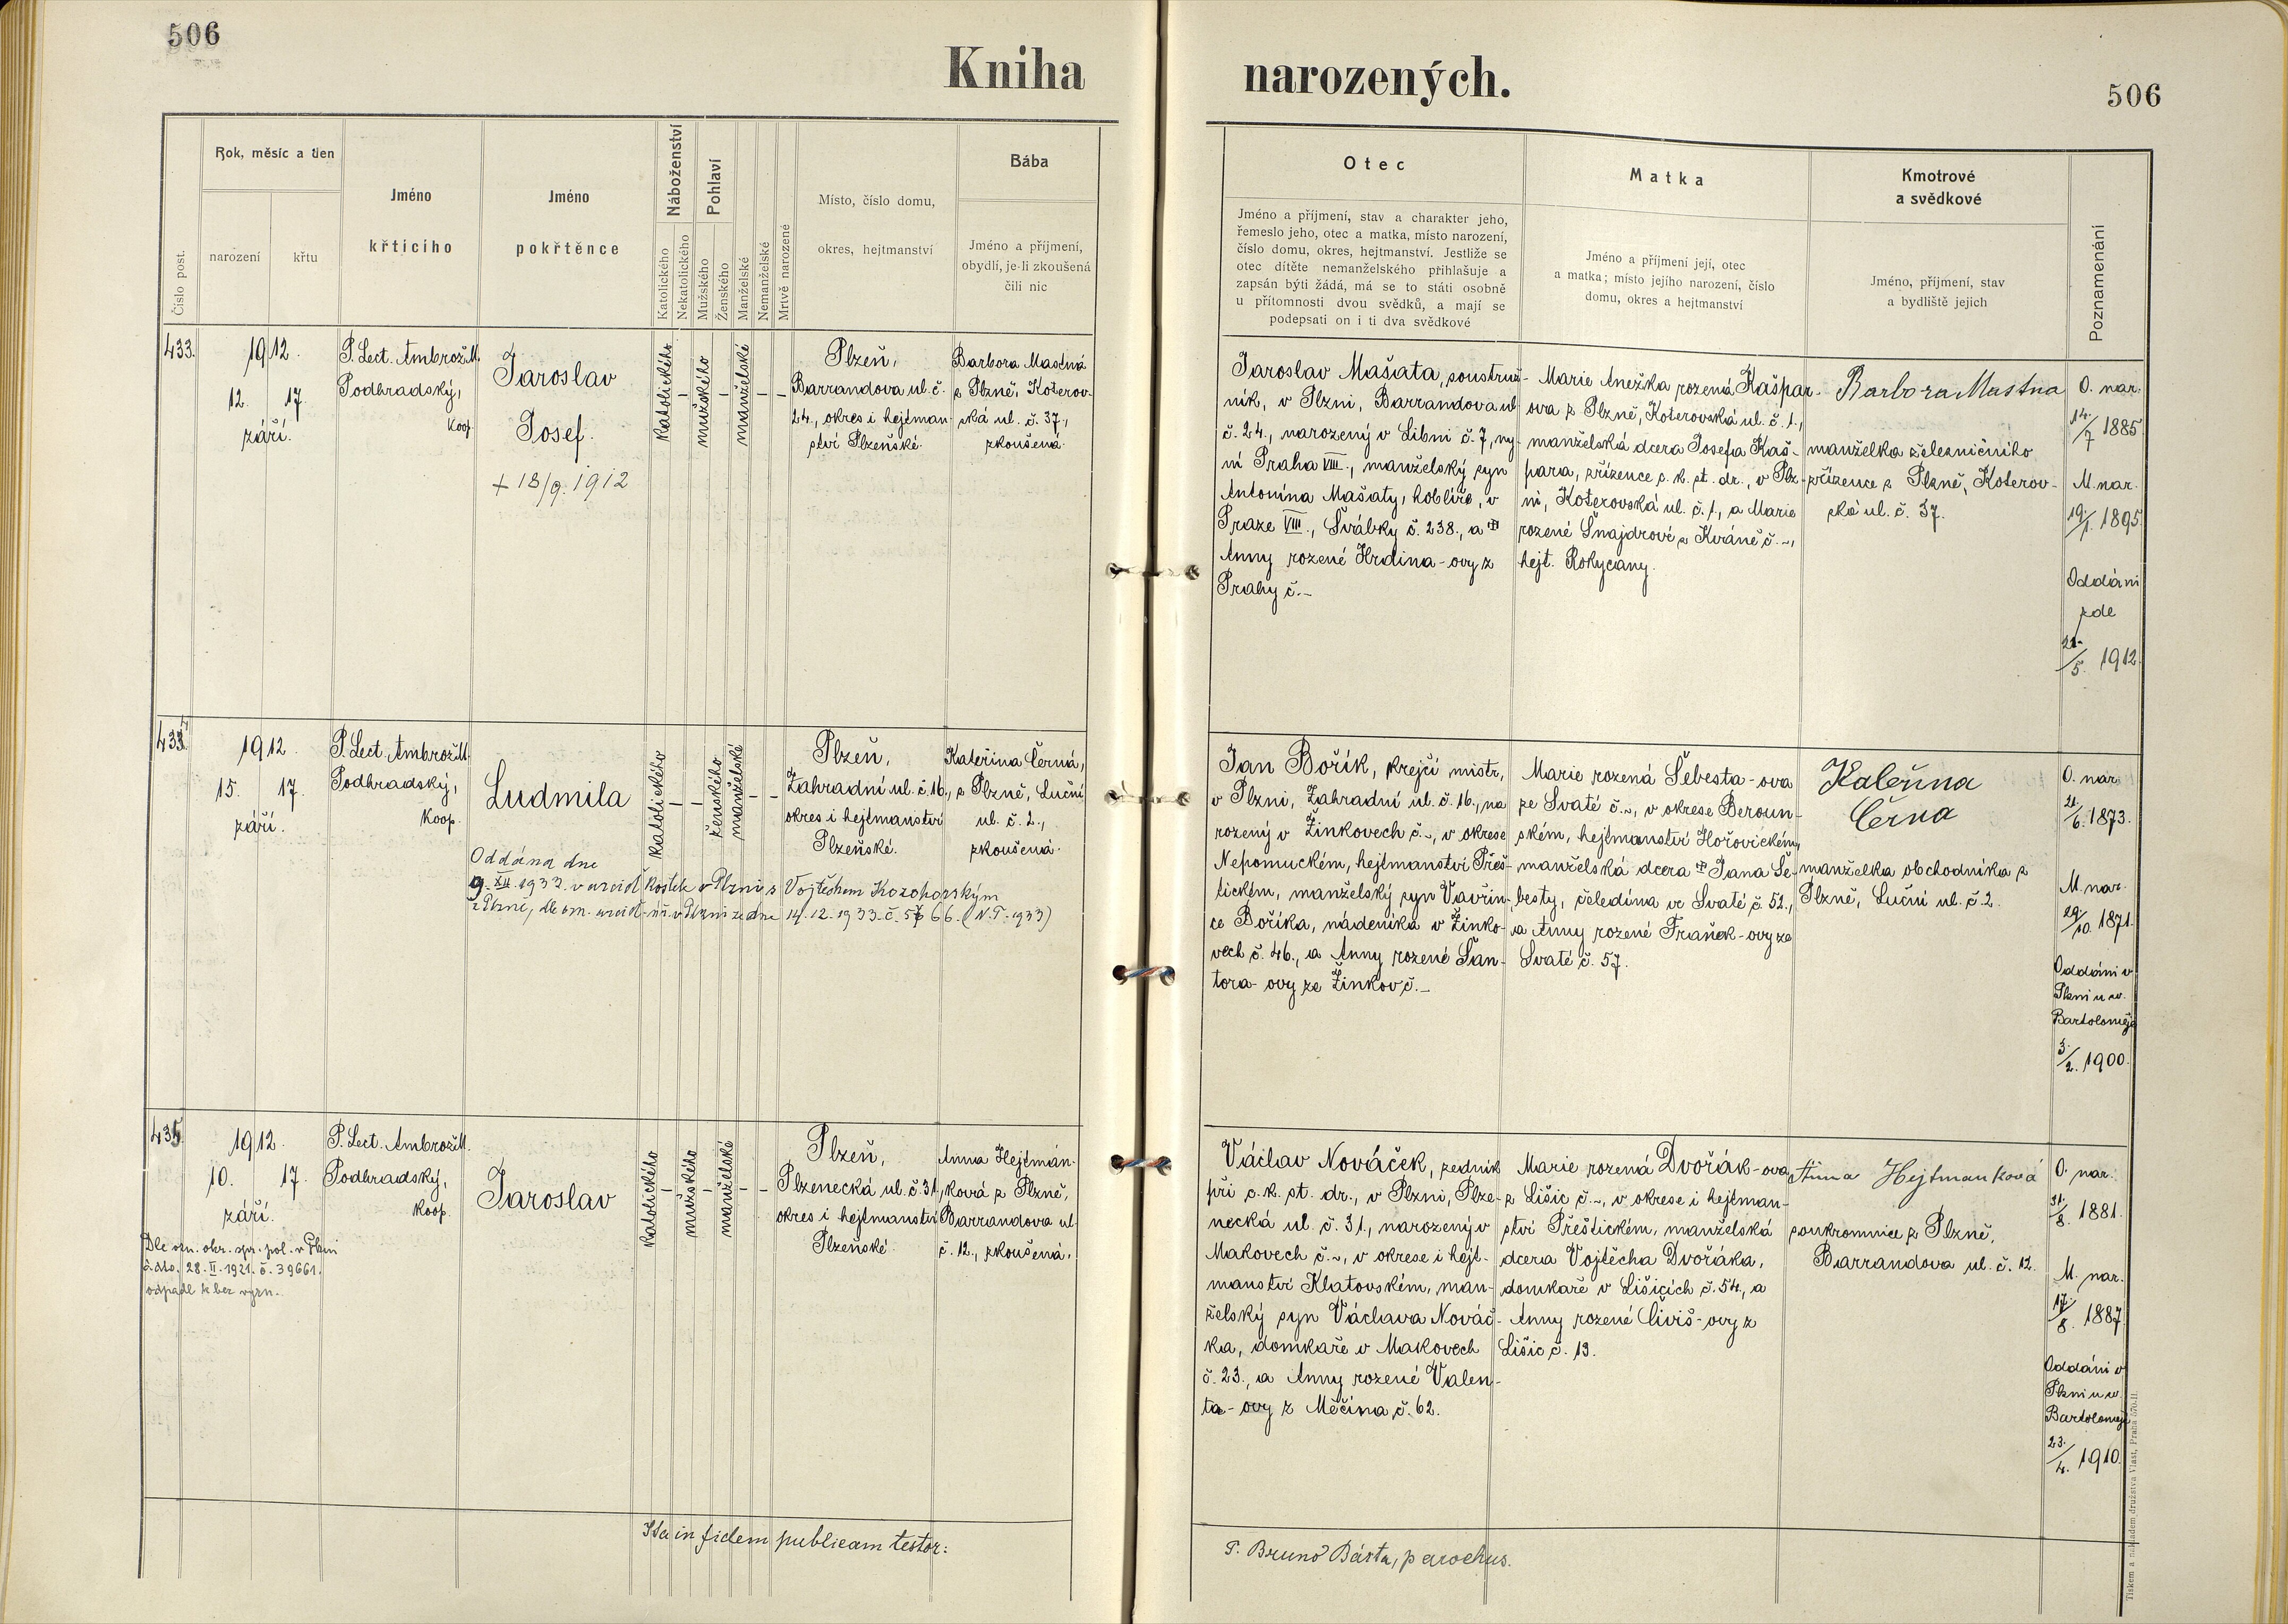 506
Kniha narozených.
506
Číslo post.
Rok, měsíc a den
narození
křtu
Jméno
křticího
Jméno
pokřtěnce
Náboženství
Katolického
Nekatolického
Pohlaví
Mužského
Ženského
Manželské
Nemanželské
Mrtvě narozené
Místo, číslo domu,
okres, hejtmanství
Bába
Jméno a příjmení,
obydlí, je-li zkoušená
čili nic
Otec
Jméno a příjmení, stav a charakter jeho,
řemeslo jeho, otec a matka, místo narození,
číslo domu, okres, hejtmanství. Jestliže se
otec dítěte nemanželského přihlašuje a
zapsán býti žádá, má se to státi osobně
u přítomnosti dvou svědků, a mají se
podepsati on i ti dva svědkové
Matka
Jméno a příjmení její, otec
a matka; místo jejího narození, číslo
domu, okres a hejtmanství
Kmotrové
a svědkové
Jméno, příjmení, stav
a bydliště jejich
Poznamenání
433.
1912.
12. 17.
září.
P. Lect. Ambrož M.
Podhradský,
koop.
Jaroslav
Josef.
+ 18/9. 1912
katolického
–
mužského
–
manželské
–
–
Plzeň,
Barrandova ul. č.
24., okres i hejtman-
ství Plzeňské.
Barbora Mastná
z Plzně, Koterov-
ská ul. č. 37.,
zkoušená.
Jaroslav Mašata, soustruž-
ník, v Plzni, Barrandova ul.
č. 24., narozený v Libni č. 7, ny-
ní Praha VIII., manželský syn
Antonína Mašaty, hoblíře, v
Praze VIII., Švábky č. 238., a
Anny rozené Hrdina-ovy z
Prahy č. –
Marie Anežka rozená Kašpar-
ova z Plzně, Koterovská ul. č. 1.,
manželská dcera Josefa Kaš-
para, zřízence c. k. st. dr., v Plz-
ni, Koterovská ul. č. 1., a Marie
rozené Šnajdrové z Kváně č. –,
hejt. Rokycany.
Barbora Mastna
manželka železničního
zřízence z Plzně, Koterov-
ská ul. č. 37.
O. nar.
14./7 1885
M. nar.
19./1. 1895.
Oddáni
zde
/5. 1912.
1912.
15. 17.
září.
P. Lect. Ambrož M.
Podhradský,
koop.
Ludmila
Oddána dne
9. XII. 1933. v arcid kostele v Plzni s Vojtěchem Kozohorským
z Plzně, dle ozn. arcid. úř. v Plzni ze dne 14. 12. 1933. č. 5766. (N. T. 1933)
katolického
–
–
ženského
manželské
–
–
Plzeň,
Zahradní ul. č. 16.,
okres i hejtmanství
Plzeňské.
Kateřina Černá,
z Plzně, Luční
ul. č. 2.,
zkoušená.
Jan Bořík, krejčí mistr,
v Plzni, Zahradní ul. č. 16., na
rozený v Žinkovech č. –, v okrese
Nepomuckém, hejtmanství Přeš-
tickém, manželský syn Vavřin-
ce Boříka, nádeníka v Žinko-
vech č. 46., a Anny rozené Šan-
tora-ovy ze Žinkov č. –
Marie rozená Šebesta-ova
ze Svaté č. –, v okrese Beroun-
ském, hejtmanství Hořovickém,
manželská dcera Jana Še-
besty, čeledína ve Svaté č. 52.,
a Anny rozené Fraňek-ovy ze
Svaté č. 57.
Kateřina
Černa
manželka obchodníka z
Plzně, Luční ul. č. 2.
O. nar.
21./6. 1873.
M. nar.
29./10. 1871.
Oddáni v
Plzni u sv.
Bartoloměje
3./2. 1900.
435.
1912.
10. 17.
září.
Dle ozn. okr. spr. pol. v Plzni
z dto. 28. II. 1921. č. 39661.
odpadl k bez vyzn.
P. Lect. Ambrož M.
Podhradský,
koop.
Jaroslav
katolického
–
mužského
–
manželské
–
–
Plzeň,
Plzenecká ul. č. 31.,
okres i hejtmanství
Plzeňské.
Anna Hejtmán-
ková z Plzně,
Barrandova ul.
č. 12., zkoušená.
Václav Nováček, zedník
při c. k. st. dr., v Plzni, Plze-
necká ul. č. 31., narozený v
Makovech č. –, v okrese i hejt-
manství Klatovském, man-
želský syn Václava Nováč-
ka, domkaře v Makovech
č. 23., a Anny rozené Valen-
ta-ovy z Měčína č. 62.
Marie rozená Dvořák-ova
z Lišic č. –, v okrese i hejtman-
ství Přeštickém, manželská
dcera Vojtěcha Dvořáka,
domkaře v Lišicích č. 54., a
Anny rozené Čiviš-ovy z
Lišic č. 13.
Anna Hejtmanková
soukromnice z Plzně,
Barrandova ul. č. 12.
O. nar.
31./8. 1881.
M. nar.
17./8. 1887.
Oddáni v
Plzni u sv.
Bartoloměje
23./4. 1910.
Ita in fidem publicam testor:
P. Bruno Bárta, parochus.
Tiskem a nákladem družstva Vlast, Praha 570-II.